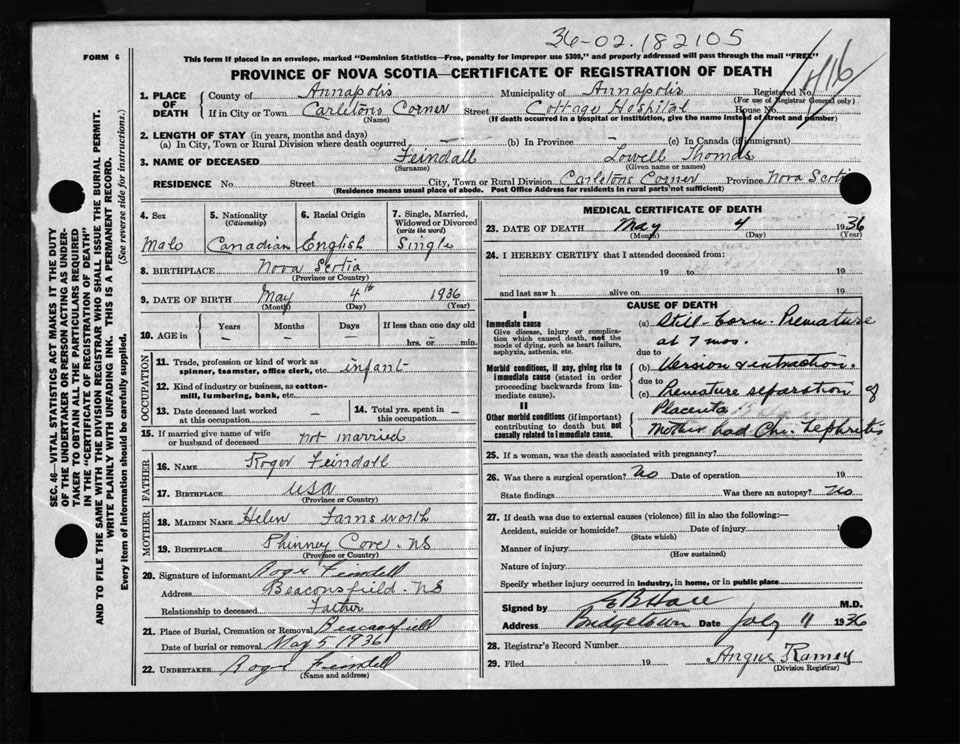 36-02.182105
FORM 6
This form if placed in an envelope, marked "Dominion Statistics—Free, penalty for improper use $300," and properly addressed will pass through the mail "FREE"
PROVINCE OF NOVA SCOTIA—CERTIFICATE OF REGISTRATION OF DEATH
1. PLACE OF DEATH
County of Annapolis Municipality of Annapolis Registered No.
(For use of Registrar General only)
If in City or Town Carletons Corner Street Cottage Hospital House No.
(Name) (If death occurred in a hospital or institution, give the name instead of street and number)
2. LENGTH OF STAY (in years, months and days)
(a) In City, Town or Rural Division where death occurred — (b) In Province — (c) In Canada (if immigrant)
3. NAME OF DECEASED Feindall Lowell Thomas
(Surname) (Given name or names)
RESIDENCE No. Street City, Town or Rural Division Carletons Corner Province Nova Scotia
(Residence means usual place of abode. Post Office Address for residents in rural parts not sufficient)
4. Sex
Male
5. Nationality
(Citizenship)
Canadian
6. Racial Origin
English
7. Single, Married, Widowed or Divorced
(write the word)
Single
8. BIRTHPLACE Nova Scotia
(Province or Country)
9. DATE OF BIRTH May 4th 1936
(Month) (Day) (Year)
10. AGE in
Years Months Days If less than one day old
— — — hrs. or min.
OCCUPATION
11. Trade, profession or kind of work as spinner, teamster, office clerk, etc. infant
12. Kind of industry or business, as cotton-mill, lumbering, bank, etc.
13. Date deceased last worked at this occupation —
14. Total yrs. spent in this occupation —
15. If married give name of wife or husband of deceased not married
FATHER
16. NAME Roger Feindall
17. BIRTHPLACE USA
(Province or Country)
MOTHER
18. MAIDEN NAME Helen Farnsworth
19. BIRTHPLACE Phinney Cove - NS
(Province or Country)
20. Signature of informant Roger Feindell
Address Beaconsfield - NS
Relationship to deceased Father
21. Place of Burial, Cremation or Removal Beaconsfield
Date of burial or removal May 5 1936
22. UNDERTAKER Roger Feindell
(Name and address)
MEDICAL CERTIFICATE OF DEATH
23. DATE OF DEATH May 4 1936
(Month) (Day) (Year)
24. I HEREBY CERTIFY that I attended deceased from:
19 to 19
and last saw h alive on 19
CAUSE OF DEATH
I
Immediate cause
Give disease, injury or complication which caused death, not the mode of dying, such as heart failure, asphyxia, asthenia, etc.
(a) Still-born Premature
at 7 mos.
due to
Morbid conditions, if any, giving rise to immediate cause (stated in order proceeding backwards from immediate cause).
(b) Version & extraction.
due to
(c) Premature separation of
Placenta
II
Other morbid conditions (if important) contributing to death but not causally related to immediate cause.
Mother had Chr. Nephritis
25. If a woman, was the death associated with pregnancy?
26. Was there a surgical operation? No Date of operation 19
State findings Was there an autopsy? No
27. If death was due to external causes (violence) fill in also the following:—
Accident, suicide or homicide? Date of injury
(State which)
Manner of injury
(How sustained)
Nature of injury
Specify whether injury occurred in industry, in home, or in public place
Signed by M.D.
Address Bridgetown Date July 11 1936
28. Registrar's Record Number
29. Filed 19 Angus Ramey
(Division Registrar)
SEC. 46—VITAL STATISTICS ACT MAKES IT THE DUTY
OF THE UNDERTAKER OR PERSON ACTING AS UNDER-
TAKER TO OBTAIN ALL THE PARTICULARS REQUIRED
IN THE "CERTIFICATE OF REGISTRATION OF DEATH"
AND TO FILE THE SAME WITH THE DIVISION REGISTRAR WHO SHALL ISSUE THE BURIAL PERMIT.
WRITE PLAINLY WITH UNFADING INK. THIS IS A PERMANENT RECORD.
Every item of information should be carefully supplied. (See reverse side for instructions.)